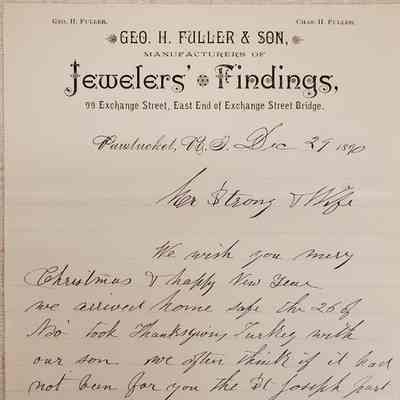 Geo. H. Fuller. Chas. H. Fuller.
GEO. H. FULLER & SON,
MANUFACTURERS OF
Jewelers' Findings,
99 Exchange Street, East End of Exchange Street Bridge.
Pawtucket, R. I. Dec 29 1890
Mr Strong & Wife
We wish you mery
Christmas & happy New Year
we arrived home safe the 26 of
Nov took Thanksgiving Turkey with
our son we often think if it had
not been for you the St Joseph part